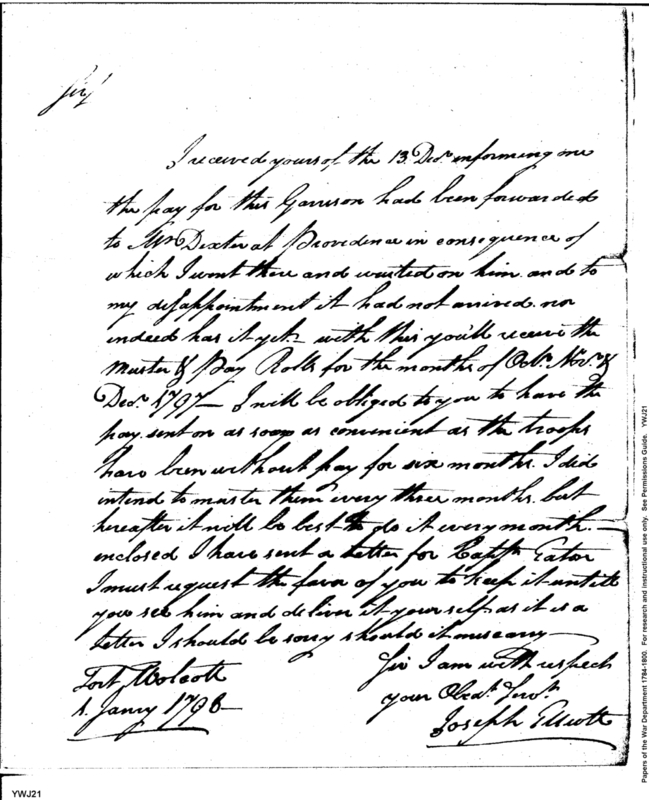 Sir,
I received yours of the 13 Decr. informing me
the pay for this Garrison had been forwarded
to Mr. Dexter at Providence in consequence of
which I went there and waited on him and to
my disappointment it had not arrived. nor
indeed has it yet. - with this you'll receive the
Muster & Pay Rolls for the months of Octr. Novr. &
Decr. 1797 - I will be obliged to you to have the
pay sent on as soon as convenient as the troops
have been without pay for six months. I did
intend to muster them every three months. but
hereafter it will be best to do it every month. -
enclosed I have sent a letter for Captn. Eaton
I must request the favor of you to keep it untill
you see him and deliver it yourself as it is a
letter I should be sorry should it miscary -
Sir I am with respect
your Obedt. Servt.
Joseph Elliott
Fort Wolcott
1. Janry 1798
YWJ21
Papers of the War Department 1784-1800. For research and instructional use only. See Permissions Guide. YWJ21